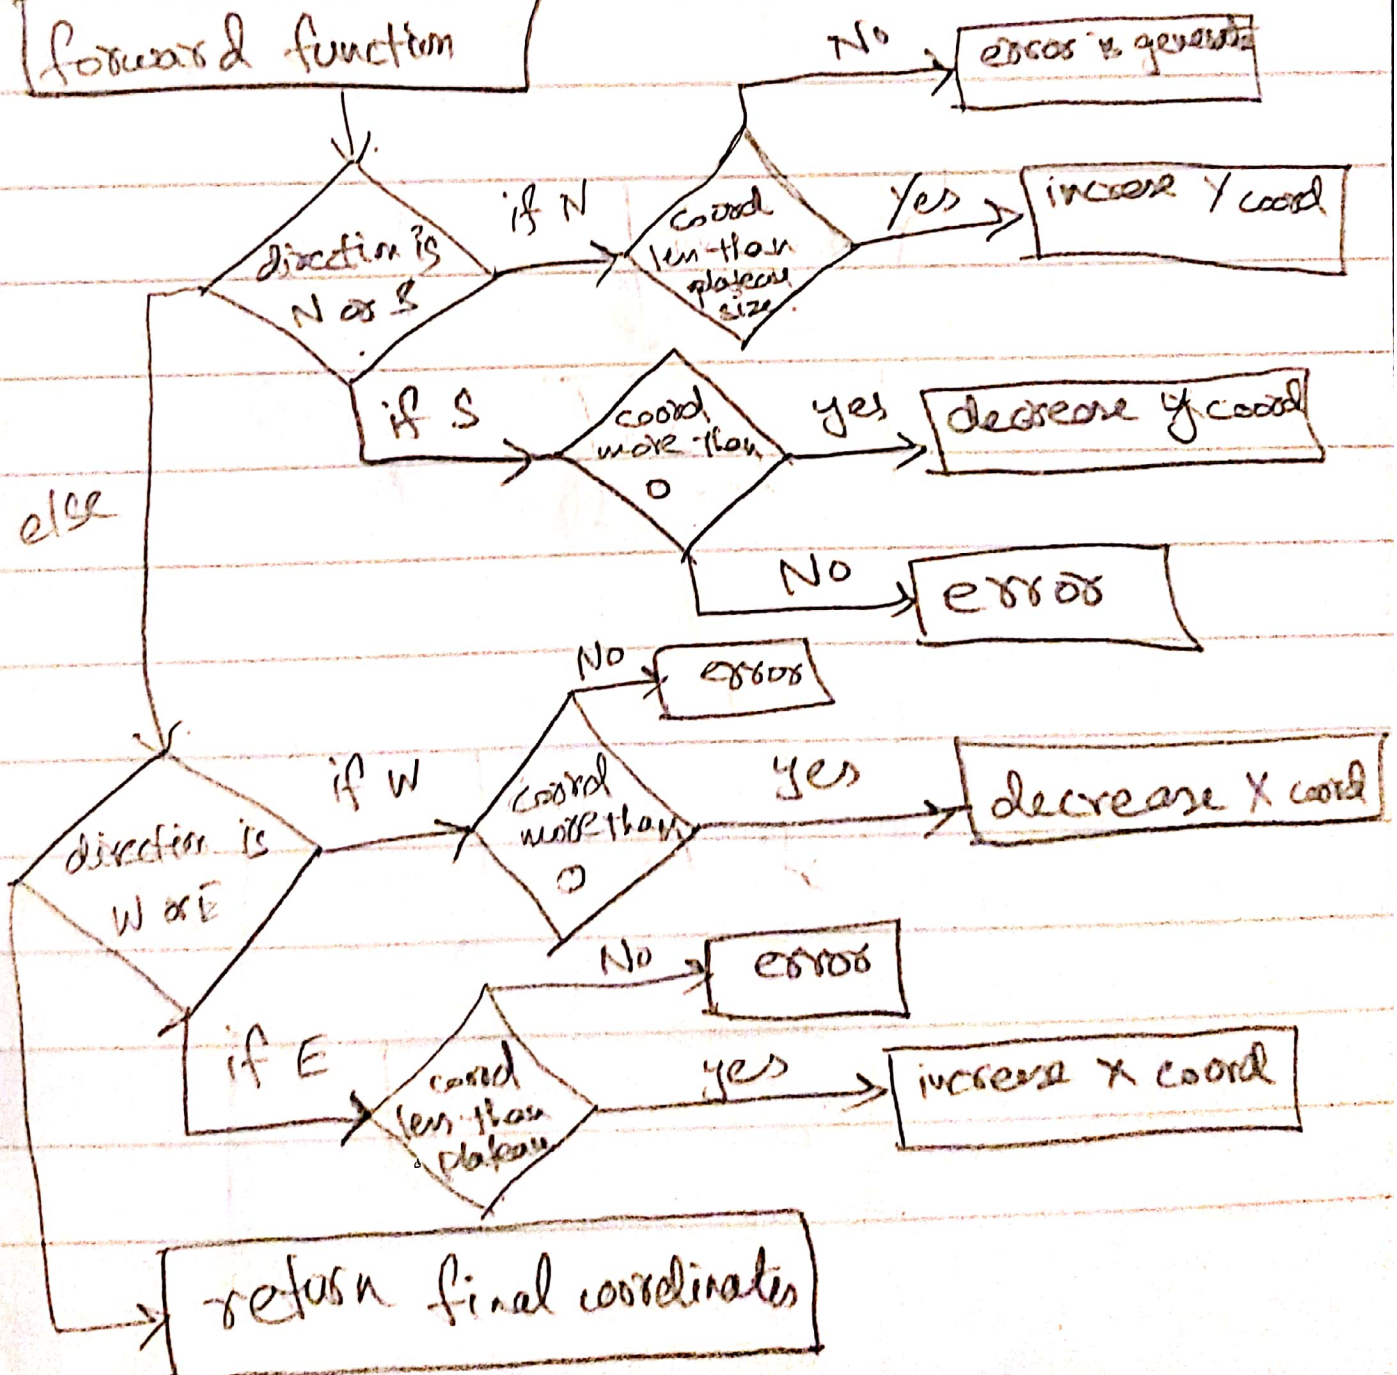 forward function
No
error is generate
direction is
N or S
if N
coord
less than
plateau
size
Yes
increase Y coord
if S
coord
more than
0
yes
decrease y coord
No
error
else
direction is
W or E
if W
coord
more than
0
No
error
yes
decrease X coord
if E
coord
less than
plateau
No
error
yes
increase X coord
return final coordinates